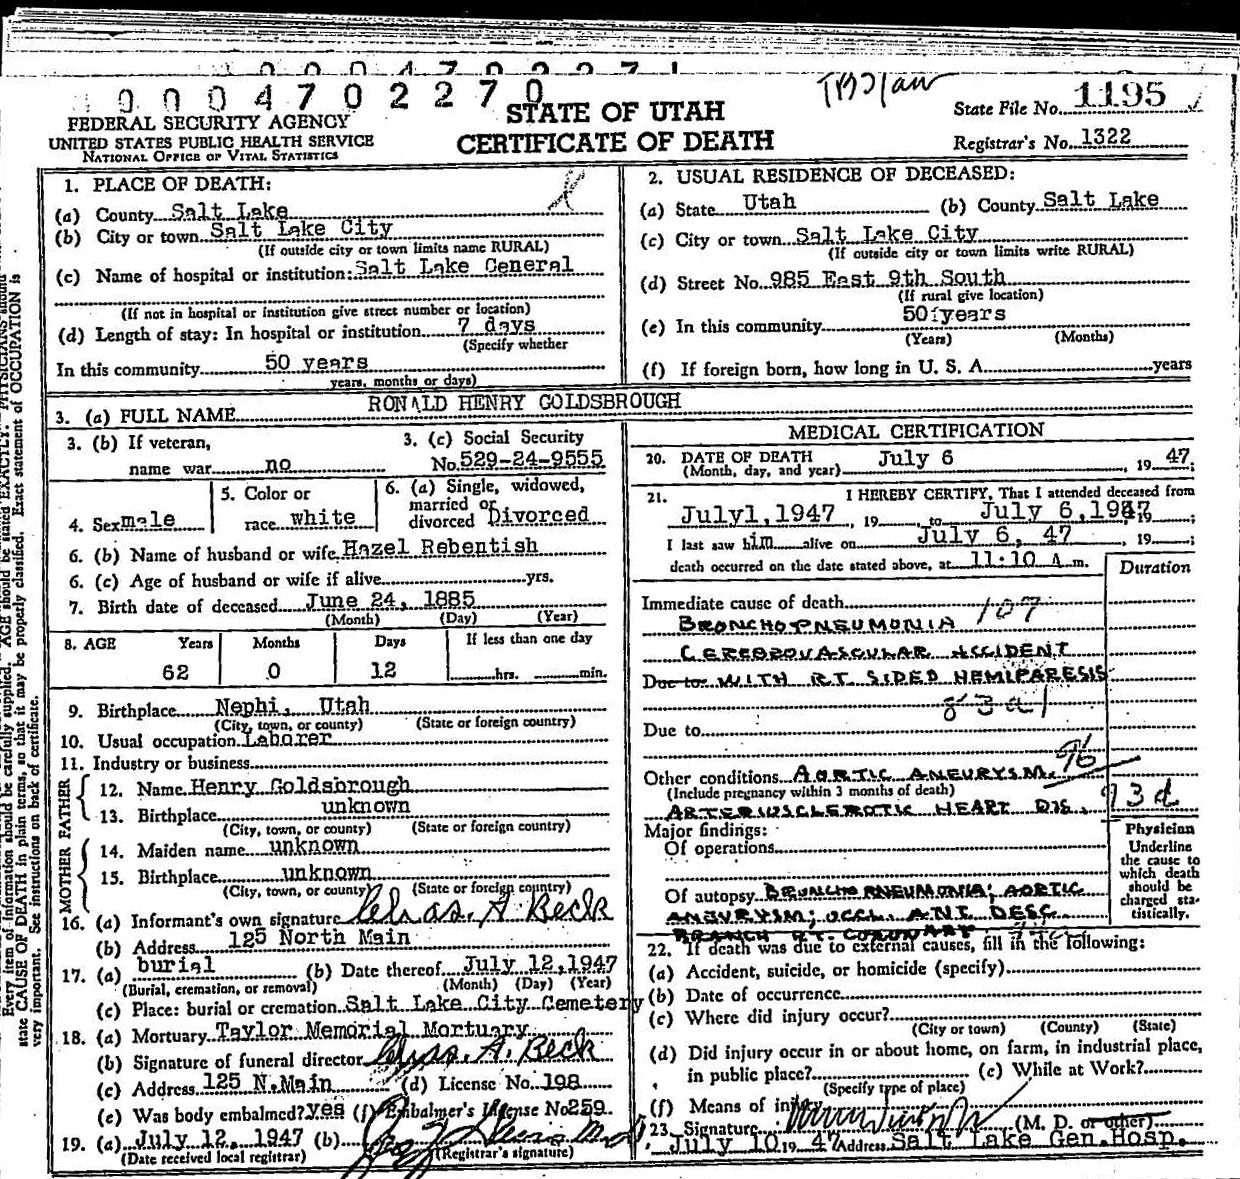 0 0 0 4 7 0 2 2 7 0
FEDERAL SECURITY AGENCY
UNITED STATES PUBLIC HEALTH SERVICE
NATIONAL OFFICE OF VITAL STATISTICS
STATE OF UTAH
CERTIFICATE OF DEATH
State File No. 1195
Registrar's No. 1322
1. PLACE OF DEATH:
(a) County Salt Lake
(b) City or town Salt Lake City
(If outside city or town limits name RURAL)
(c) Name of hospital or institution: Salt Lake General
(If not in hospital or institution give street number or location)
(d) Length of stay: In hospital or institution 7 days
(Specify whether
In this community 50 years
years, months or days)
2. USUAL RESIDENCE OF DECEASED:
(a) State Utah (b) County Salt Lake
(c) City or town Salt Lake City
(If outside city or town limits write RURAL)
(d) Street No. 985 East 9th South
(If rural give location)
(e) In this community 50 years
(Years) (Months)
(f) If foreign born, how long in U. S. A. years
3. (a) FULL NAME RONALD HENRY GOLDSBROUGH
3. (b) If veteran,
name war no
3. (c) Social Security
No. 529-24-9555
4. Sex male
5. Color or
race white
6. (a) Single, widowed,
married or
divorced Divorced
6. (b) Name of husband or wife Hazel Rebentish
6. (c) Age of husband or wife if alive yrs.
7. Birth date of deceased June 24, 1885
(Month) (Day) (Year)
8. AGE Years Months Days If less than one day
62 0 12 hrs. min.
9. Birthplace Nephi, Utah
(City, town, or county) (State or foreign country)
10. Usual occupation Laborer
11. Industry or business
FATHER
12. Name Henry Goldsbrough
13. Birthplace unknown
(City, town, or county) (State or foreign country)
MOTHER
14. Maiden name unknown
15. Birthplace unknown
(City, town, or county) (State or foreign country)
16. (a) Informant's own signature Chas. A Beck
(b) Address 125 North Main
17. (a) burial (b) Date thereof July 12, 1947
(Burial, cremation, or removal) (Month) (Day) (Year)
(c) Place: burial or cremation Salt Lake City Cemetery
18. (a) Mortuary Taylor Memorial Mortuary
(b) Signature of funeral director Chas. A. Beck
(c) Address 125 N. Main (d) License No. 198
(e) Was body embalmed? yes (f) Embalmer's License No 259
19. (a) July 12, 1947 (b)
(Date received local registrar) (Registrar's signature)
MEDICAL CERTIFICATION
20. DATE OF DEATH
(Month, day, and year) July 6, 19 47
21. I HEREBY CERTIFY, That I attended deceased from
July1, 1947, 19 to July 6, 1947, 19 ;
I last saw him alive on July 6, 47, 19 ;
death occurred on the date stated above, at 11:10 A m.
Duration
Immediate cause of death 107
BRONCHOPNEUMONIA
CEREBROVASCULAR ACCIDENT
Due to WITH RT. SIDED HEMIPARESIS
83a1
Due to
96
Other conditions AORTIC ANEURYSM.
(Include pregnancy within 3 months of death)
ARTERIOSCLEROTIC HEART DIS. 93d
Major findings:
Of operations
Of autopsy BRONCHOPNEUMONIA; AORTIC
ANEURYSM; OCCL. ANT. DESC.
BRANCH RT. CORONARY
Physician
Underline
the cause to
which death
should be
charged sta-
tistically.
22. If death was due to external causes, fill in the following:
(a) Accident, suicide, or homicide (specify)
(b) Date of occurrence
(c) Where did injury occur?
(City or town) (County) (State)
(d) Did injury occur in or about home, on farm, in industrial place,
in public place? (e) While at Work?
(Specify type of place)
(f) Means of injury
23. Signature (M. D. or other)
July 10 19 47 Address Salt Lake Gen. Hosp.
Every item of information should be carefully supplied. AGE should be stated EXACTLY. PHYSICIANS should
state CAUSE OF DEATH in plain terms, so that it may be properly classified. Exact statement of OCCUPATION is
very important. See instructions on back of certificate.